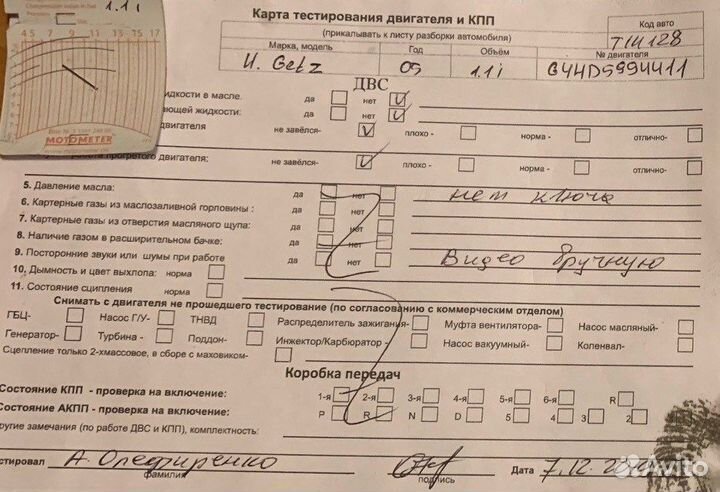 1.1i
Карта тестирования двигателя и КПП
(прикалывать к листу разборки автомобиля)
Код авто
T1H128
Марка, модель Год Объём № двигателя
H. Getz 05 1.1i G4HD5994411
4 5 7 9 11 13 15 17
MOTOMETER
ДВС
идкости в масле. да нет V
ающей жидкости: да нет V
двигателя не завёлся- V плохо - норма - отлично-
работа прогретого двигателя: не завёлся- V плохо - норма - отлично-
5. Давление масла: да нет нет ключа
6. Картерные газы из маслозаливной горловины : да нет
7. Картерные газы из отверстия масляного щупа: да нет
8. Наличие газом в расширительном бачке: да нет
9. Посторонние звуки или шумы при работе да нет Видео вручную
10. Дымность и цвет выхлопа: норма
11. Состояние сцепления норма
Снимать с двигателя не прошедшего тестирование (по согласованию с коммерческим отделом)
ГБЦ- Насос Г/У- ТНВД Распределитель зажигания- Муфта вентилятора- Насос масляный-
Генератор- Турбина - Поддон- Инжектор/Карбюратор - Насос вакуумный- Коленвал-
Сцепление только 2-хмассовое, в сборе с маховиком-
Коробка передач
Состояние КПП - проверка на включение: 1-я 2-я 3-я 4-я 5-я 6-я R
Состояние АКПП - проверка на включение: P R N D 5 4 3 2
ругие замечания (по работе ДВС и КПП), комплектность:
стировал А. Олефиренко Дата 7.12.
фамилия подпись
Avito